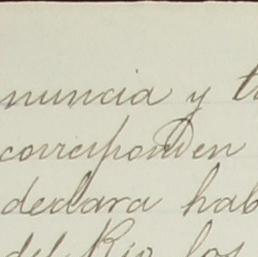 nuncia y
corresponden
declara hab
del Rio los